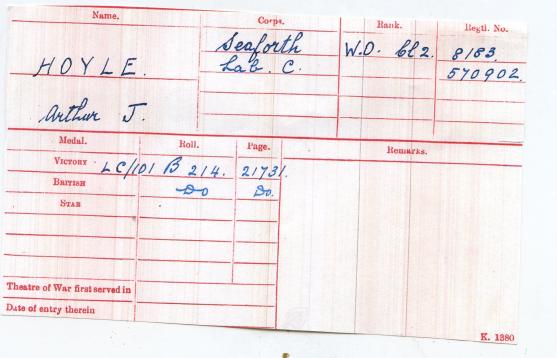 Name. Corps. Rank. Regtl. No.
HOYLE. Seaforth W.O. Cl 2. 8183.
Lab. C. 570902.
Arthur J.
Medal. Roll. Page. Remarks.
VICTORY LC/101 B 214. 21731.
BRITISH Do Do.
STAR
Theatre of War first served in
Date of entry therein
K. 1380